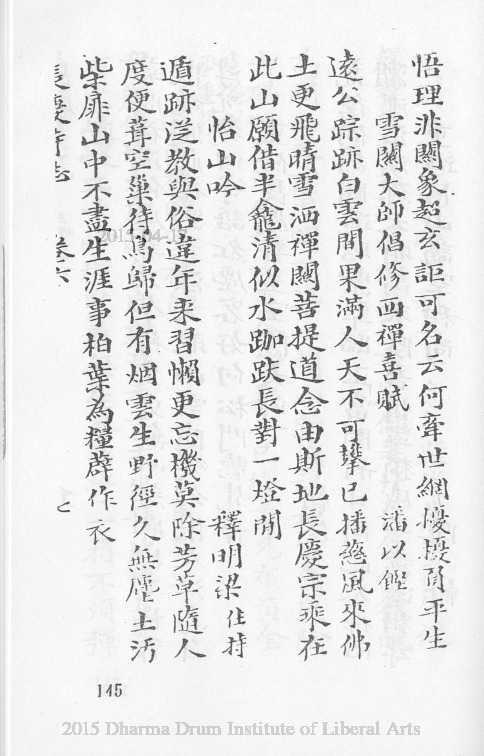 悟理非關象超玄詎可名云何牽世網擾擾負平生
雪關大師倡修西禪喜賦
潘以鏗
遠公踪跡白雲間果滿人天不可攀已播慈風來佛
土更飛晴雪洒禪關菩提道念由斯地長慶宗乘在
此山願借半龕清似水跏趺長對一燈閒
怡山吟
釋明梁 住持
遁跡逆教與俗違年来習懶更忘機莫除芳草隨人
度便葺空巢待鳥歸但有烟雲生野徑久無塵土汚
柴扉山中不盡生涯事柏葉為糧薜作衣
長慶寺志 卷六 七
145
2015 Dharma Drum Institute of Liberal Arts